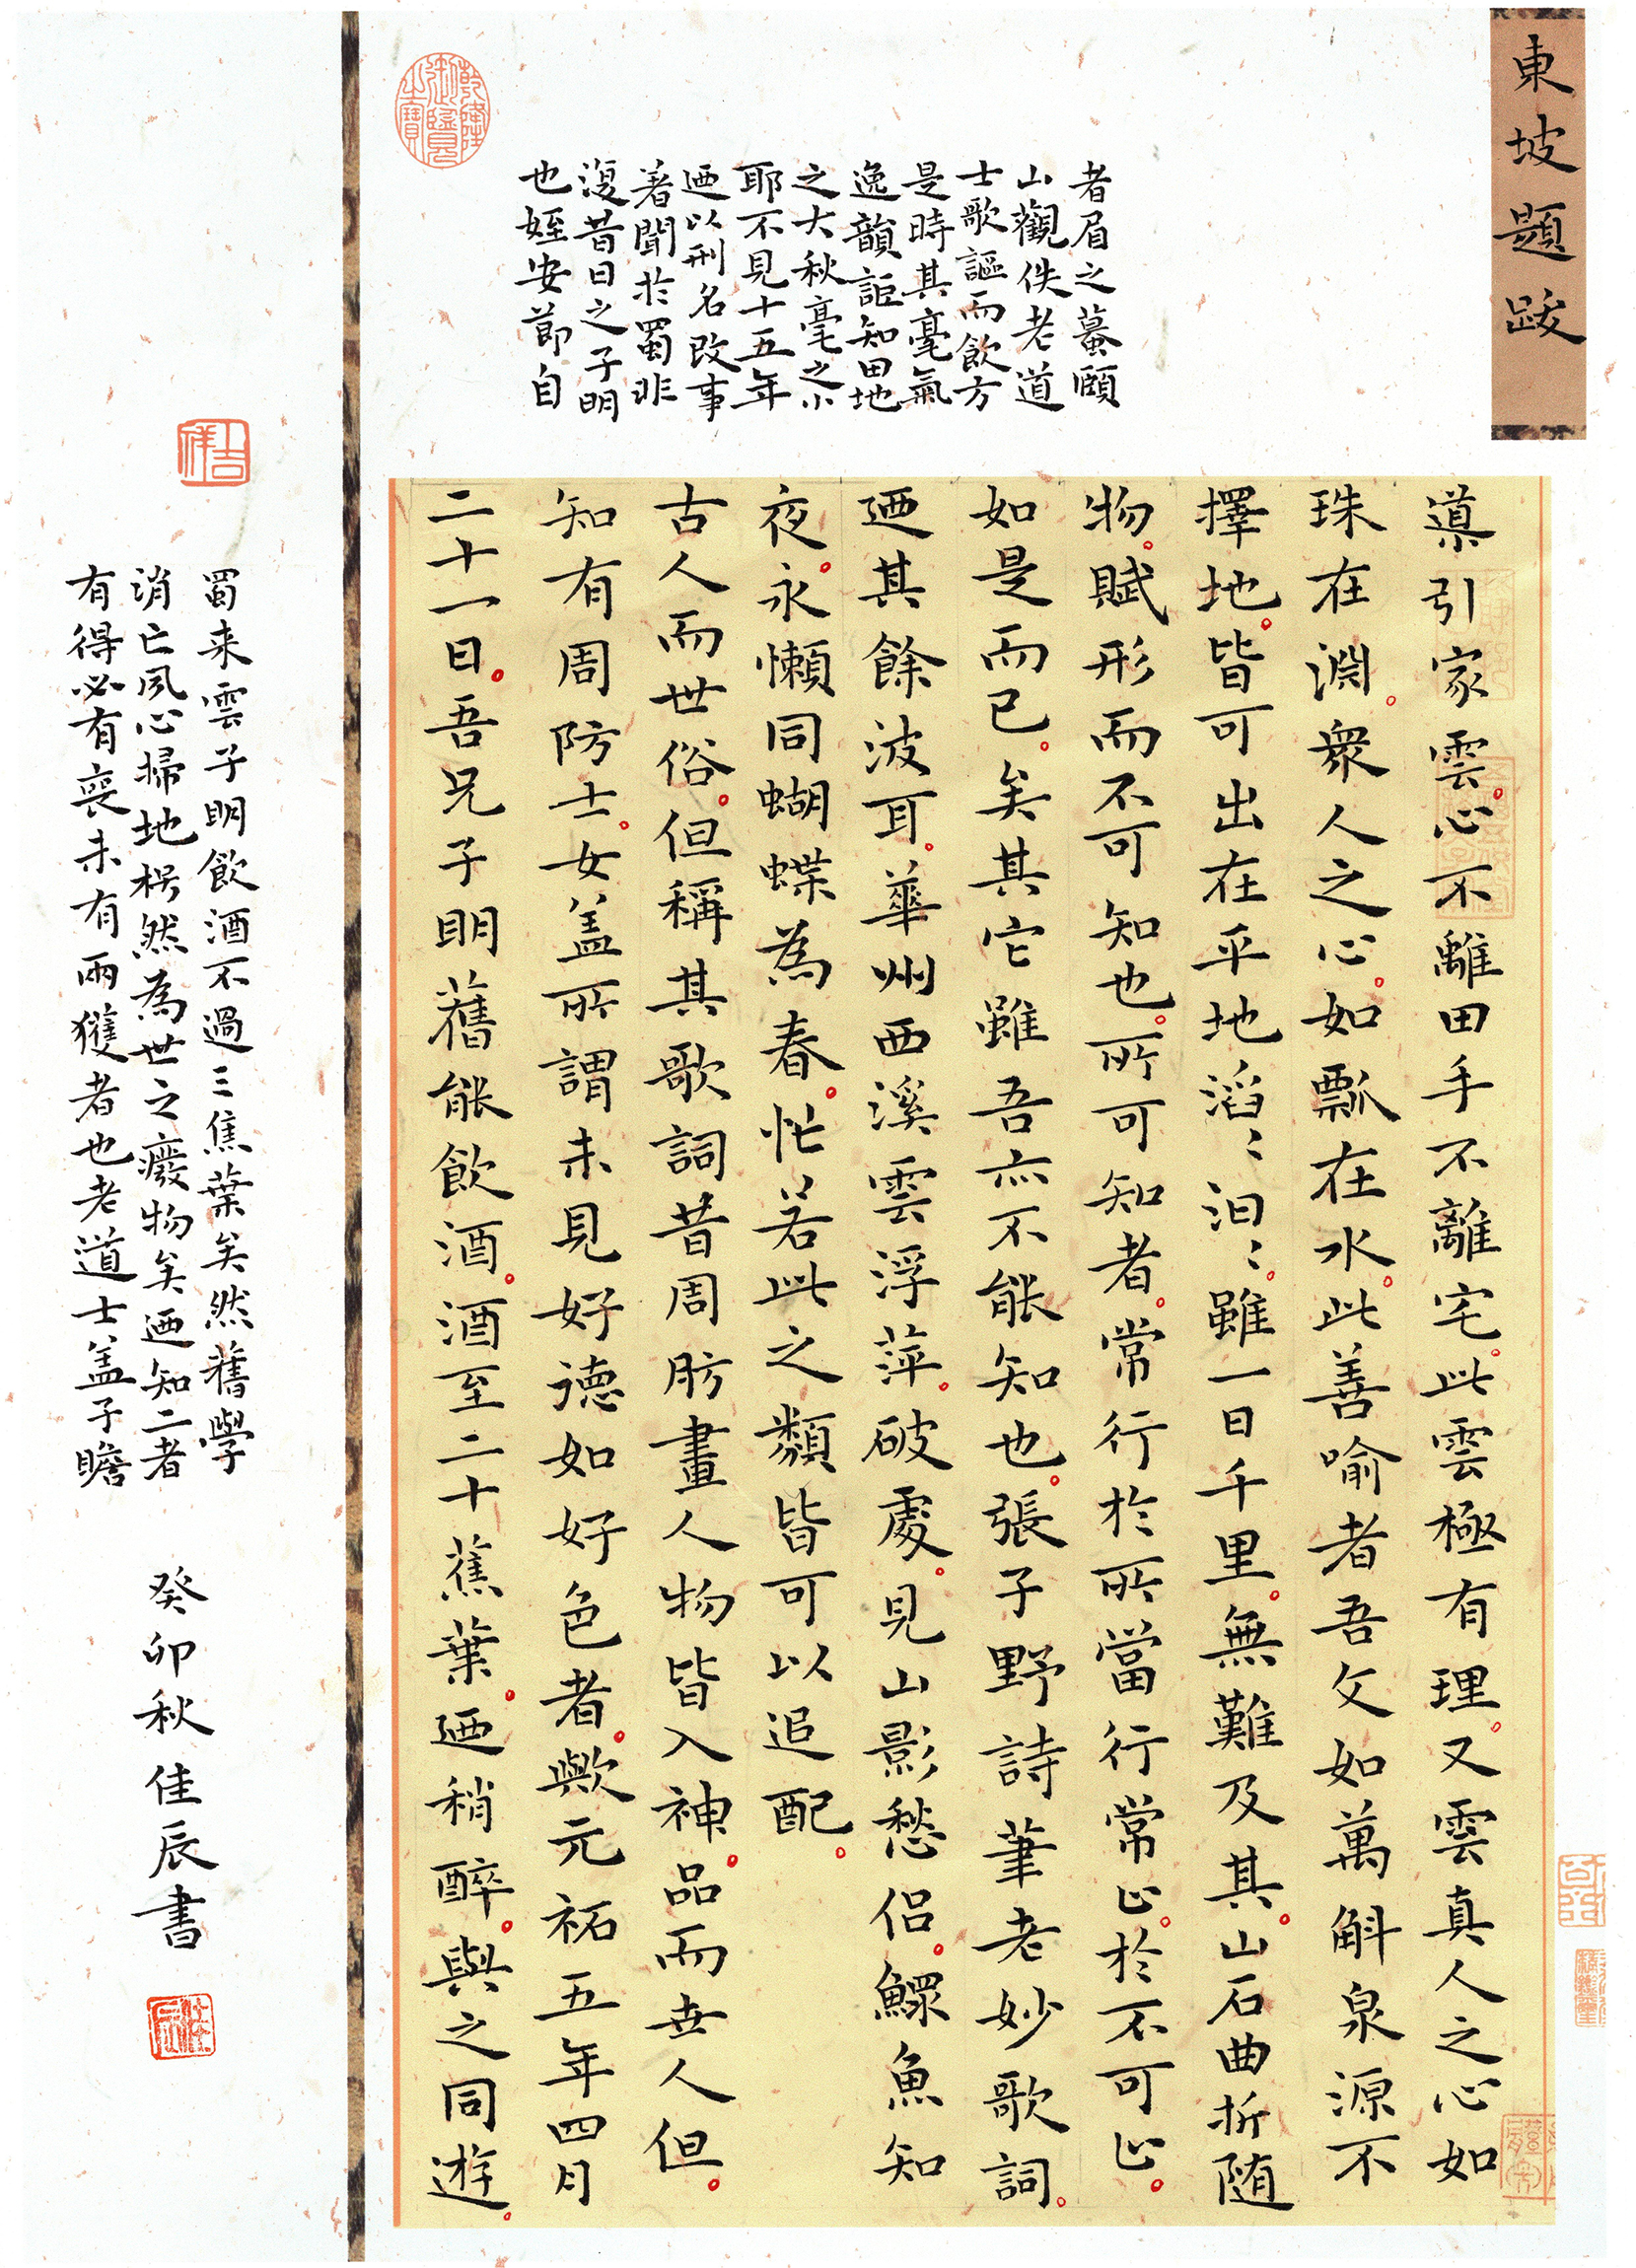 東坡題跋
導引家雲心不離田手不離宅此雲極有理又雲真人之心如
珠在淵衆人之心如瓢在水此善喻者吾文如萬斛泉源不
擇地皆可出在平地滔〻汩〻雖一日千里無難及其山石曲折随
物賦形而不可知也所可知者常行於所當行常止於不可止
如是而已矣其它雖吾亦不能知也張子野詩筆老妙歌詞
迺其餘波耳華州西溪雲浮萍破處見山影愁侣鰥魚知
夜永懶同蝴蝶為春忙若此之類皆可以追配
古人而世俗但稱其歌詞昔周昉畫人物皆入神品而世人但
知有周防士女盖所謂未見好德如好色者歟元祐五年四月
二十一日吾兄子明舊能飲酒酒至二十蕉葉迺稍醉與之同遊
者眉之蟇頤
山觀佚老道
士歌謳而飲方
是時其毫氣
逸韻詎知田地
之大秋毫之小
耶不見十五年
迺以刑名政事
著聞於蜀非
復昔日之子明
也姪安節自
蜀来雲子明飲酒不過三焦葉矣然舊學
消亡夙心掃地枵然為世之癈物矣迺知二者
有得必有喪未有兩獲者也老道士盖子瞻
癸卯秋佳辰書
乾隆御覽之寶
吉祥